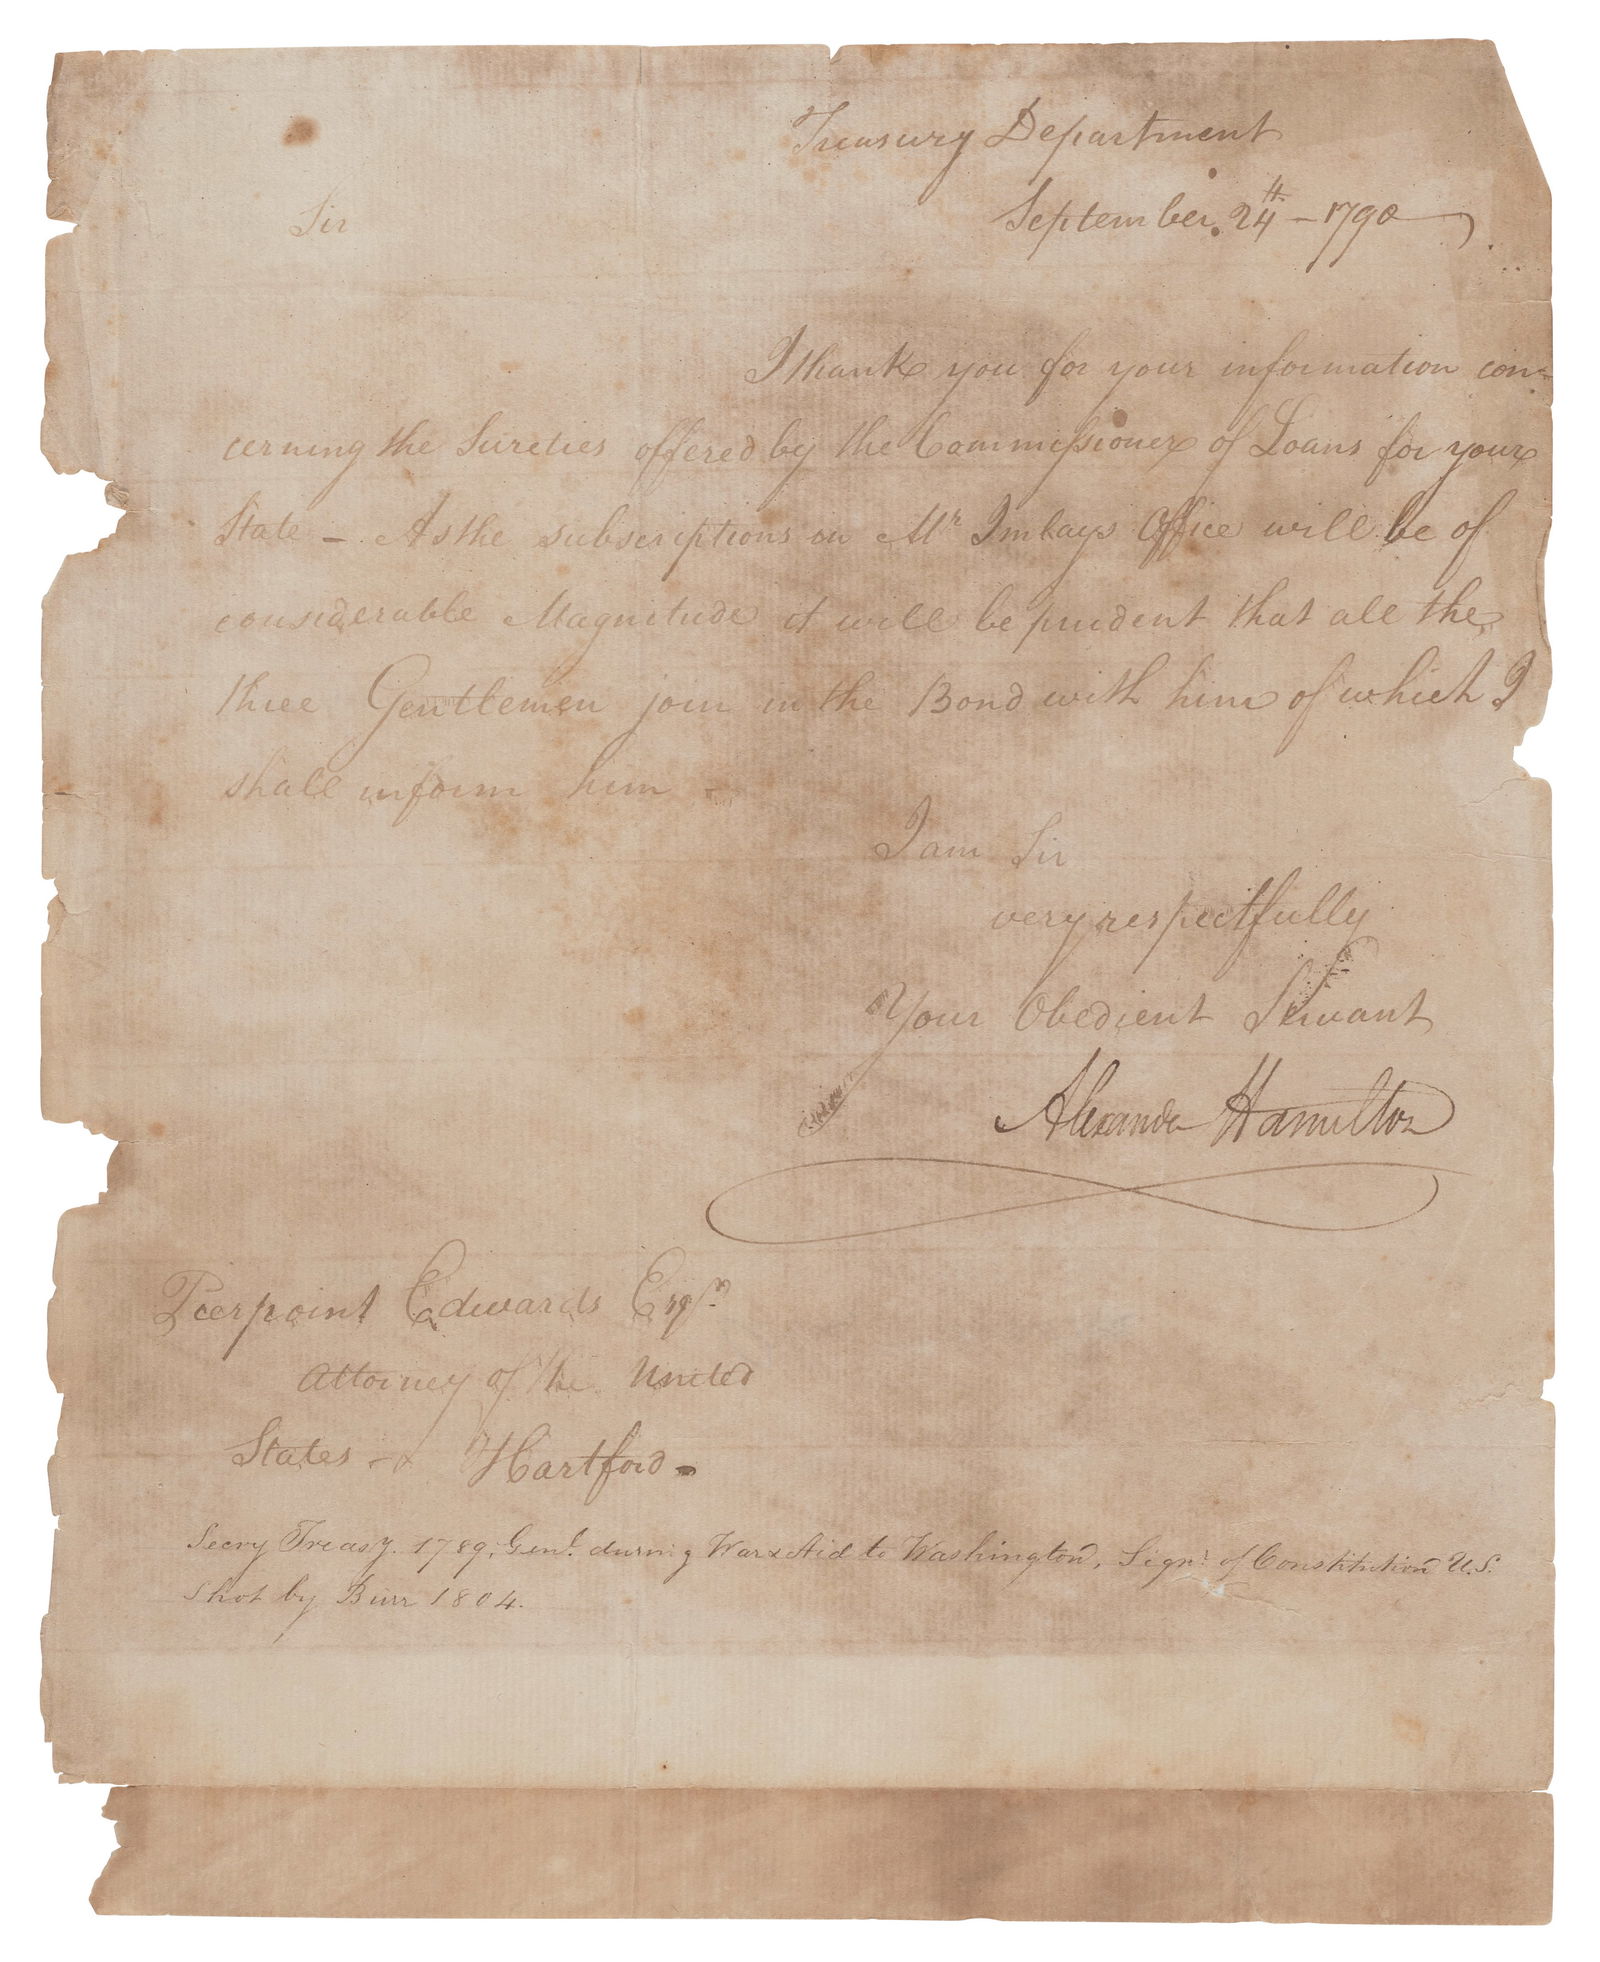 Treasury Department
September 24th – 1790
Sir
I thank you for your information con-
cerning the Sureties offered by the Commissioner of Loans for your
State – As the subscriptions in Mr Imlays Office will be of
considerable Magnitude it will be prudent that all the
three Gentlemen join in the Bond with him of which I
shall inform him
I am Sir
very respectfully
Your Obedient Servant
Alexander Hamilton
Pierpoint Edwards Esqr.
Attorney of the United
States – Hartford –
Secry Treasy. 1789, Genl. during War & Aid to Washington, Signr of Constitution U.S.
Shot by Burr 1804.